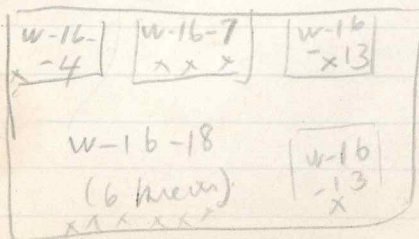 w-16-
-4
x
w-16-7
x x x
w-16
-x13
w-16-18
(6 pieces)
x x x x x x
w-16
-13
x